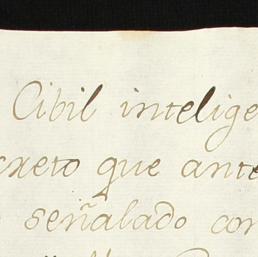 Cibil intelige
creto que ante
señalado con